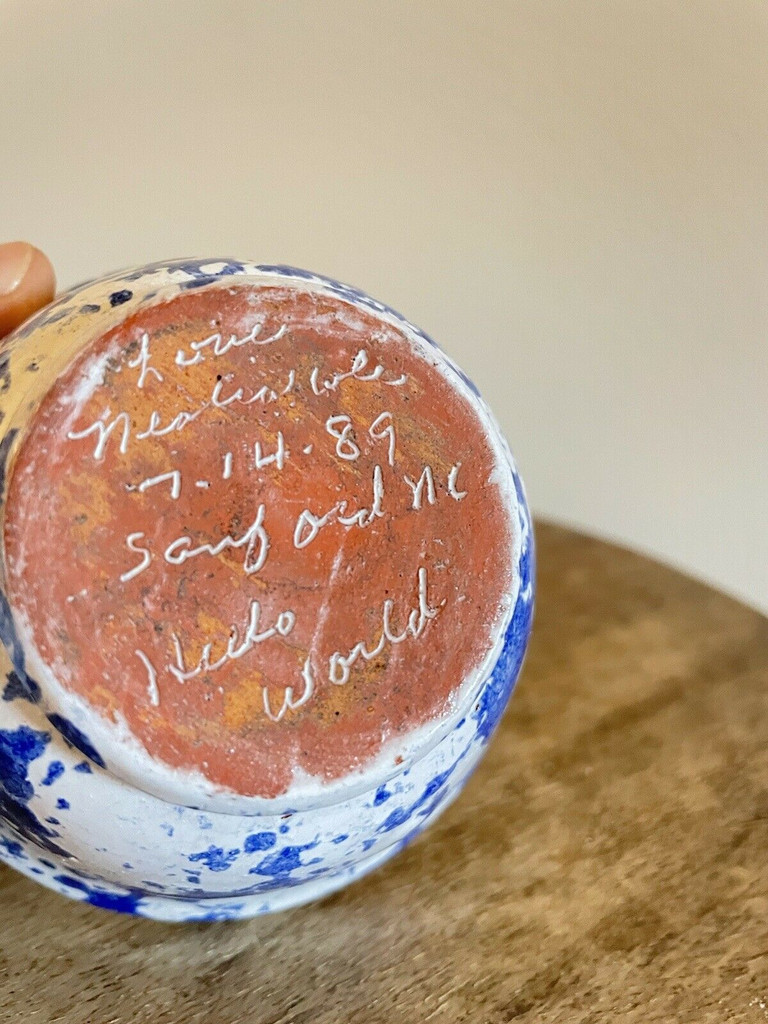 Love
Neolia Cole
7.14.89
Sanford NC
Hello
World